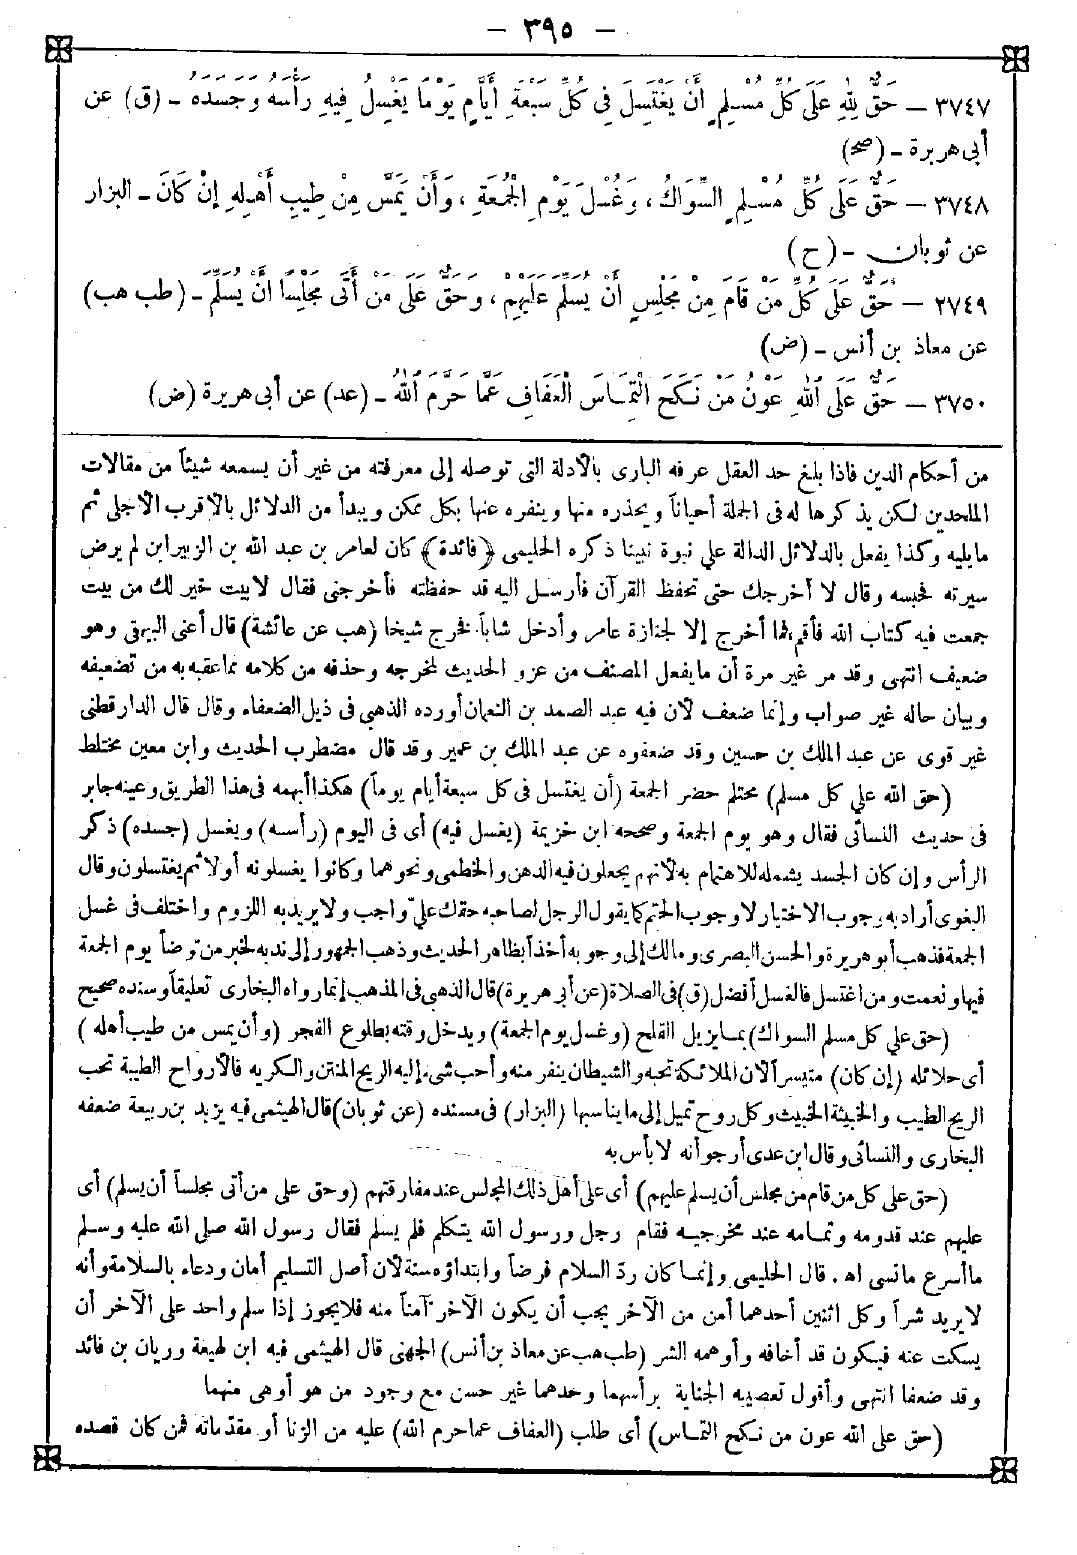 – ٣٩٥ –
٣٧٤٧ – حَقٌّ لِلّٰهِ عَلَى كُلِّ مُسْلِمٍ أَنْ يَغْتَسِلَ فِى كُلِّ سَبْعَةِ أَيَّامٍ يَوْمًا يَغْسِلُ فِيهِ رَأْسَهُ وَجَسَدَهُ – (ق) عن
أبى هريرة – (صح)
٣٧٤٨ – حَقٌّ عَلَى كُلِّ مُسْلِمٍ السِّوَاكُ، وَغُسْلُ يَوْمِ الْجُمُعَةِ، وَأَنْ يَمَسَّ مِنْ طِيبِ أَهْلِهِ إِنْ كَانَ – البزار
عن ثوبان – (ح)
٢٧٤٩ – حَقٌّ عَلَى كُلِّ مَنْ قَامَ مِنْ مَجْلِسٍ أَنْ يُسَلِّمَ عَلَيْهِمْ، وَحَقٌّ عَلَى مَنْ أَتَى مَجْلِسًا أَنْ يُسَلِّمَ – (طب هب)
عن معاذ بن أنس – (ض)
٣٧٥٠ – حَقٌّ عَلَى اللهِ عَوْنُ مَنْ نَكَحَ الْتِمَاسَ الْعَفَافِ عَمَّا حَرَّمَ اللهُ – (عد) عن أبى هريرة (ض)
من أحكام الدين فاذا بلغ حد العقل عرفه البارى بالأدلة التى توصله إلى معرفته من غير أن يسمعه شيئاً من مقالات
الملحدين لكن يذكرها له فى الجملة أحياناً ويحذره منها وينفره عنها بكل ممكن ويبدأ من الدلائل بالأقرب الأجلى ثم
مايليه وكذا يفعل بالدلائل الدالة على نبوة نبينا ذكره الحليمى ﴿فائدة﴾ كان لعامر بن عبد الله بن الزبير ابن لم يرض
سيرته فحبسه وقال لا أخرجك حتى تحفظ القرآن فأرسل اليه قد حفظته فأخرجنى فقال لابيت خير لك من بيت
جمعت فيه كتاب الله فأقم فما أخرج إلا لجنازة عامر وأدخل شاباً فخرج شيخا (هب عن عائشة) قال أعنى البيهقى وهو
ضعيف انتهى وقد مر غير مرة أن مايفعل المصنف من عزو الحديث لمخرجه وحذفه من كلامه ماعقبه به من تضعيفه
وبيان حاله غير صواب وإنما ضعف لأن فيه عبد الصمد بن النعمان أورده الذهبى فى ذيل الضعفاء وقال قال الدارقطنى
غير قوى عن عبد الملك بن حسين وقد ضعفوه عن عبد الملك بن عمير وقد قال مضطرب الحديث وابن معين مختلط
(حق الله على كل مسلم) محتلم حضر الجمعة (أن يغتسل فى كل سبعة أيام يوماً) هكذا أبهمه فى هذا الطريق وعينه جابر
فى حديث النسائى فقال وهو يوم الجمعة وصححه ابن خزيمة (يغسل فيه) أى فى اليوم (رأسه) ويغسل (جسده) ذكر
الرأس وإن كان الجسد يشمله للاهتمام به لأنهم يجعلون فيه الدهن والخطمى ونحوهما وكانوا يغسلونه أولا ثم يغتسلون وقال
البغوى أراد به وجوب الاختيار لا وجوب الحتم كما يقول الرجل لصاحبه حقك علىّ واجب ولا يريد به اللزوم واختلف فى غسل
الجمعة فذهب أبو هريرة والحسن البصرى ومالك إلى وجوبه أخذاً بظاهر الحديث وذهب الجمهور إلى ندبه لخبر من توضأ يوم الجمعة
فبها ونعمت ومن اغتسل فالغسل أفضل (ق) فى الصلاة (عن أبى هريرة) قال الذهبى فى المذهب إنما رواه البخارى تعليقاً وسنده صحيح
(حق على كل مسلم السواك) بما يزيل القلح (وغسل يوم الجمعة) ويدخل وقته بطلوع الفجر (وأن يمس من طيب أهله)
أى حلائله (إن كان) متيسراً لأن الملائكة تحبه والشيطان ينفر منه وأحب شىء إليه الريح المنتن والكريه فالأرواح الطيبة تحب
الريح الطيب والخبيثة الخبيث وكل روح تميل إلى ما يناسبها (البزار) فى مسنده (عن ثوبان) قال الهيثمى فيه يزيد بن ربيعة ضعفه
البخارى والنسائى وقال ابن عدى أرجو أنه لا بأس به
(حق على كل من قام من مجلس أن يسلم عليهم) أى على أهل ذلك المجلس عند مفارقتهم (وحق على من أتى مجلساً أن يسلم) أى
عليهم عند قدومه وتمامه عند مخرجيه فقام رجل ورسول الله يتكلم فلم يسلم فقال رسول الله صلى الله عليه وسلم
ما أسرع مانسى اه. قال الحليمى وإنما كان ردّ السلام فرضاً وابتداؤه سنة لأن أصل التسليم أمان ودعاء بالسلامة وأنه
لا يريد شراً وكل اثنين أحدهما أمن من الآخر يجب أن يكون الآخر آمناً منه فلا يجوز إذا سلم واحد على الآخر أن
يسكت عنه فيكون قد أخافه وأوهمه الشر (طب هب عن معاذ بن أنس) الجهنى قال الهيثمى فيه ابن لهيعة وريان بن فائد
وقد ضعفا انتهى وأقول تعصيبه الجناية برأسهما وحدهما غير حسن مع وجود من هو أوهى منهما
(حق على الله عون من نكح التماس) أى طلب (العفاف عما حرم الله) عليه من الزنا أو مقدماته فمن كان قصده